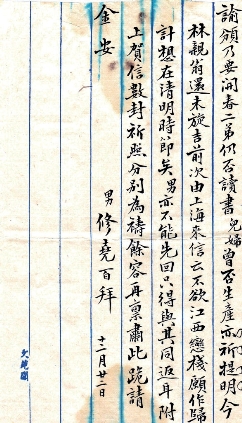 諭頒乃要聞春二弟仍否讀書兒婦曾否生產亦祈提明今
林親翁還未旋吉前次由上海來信云不欲江西戀棧願作歸
計想在清明時節矣男亦不能先回只得與其同返耳附
上賀信數封祈照分別為禱餘容再稟肅此跪請
金安
男修堯百拜
十二月廿二日